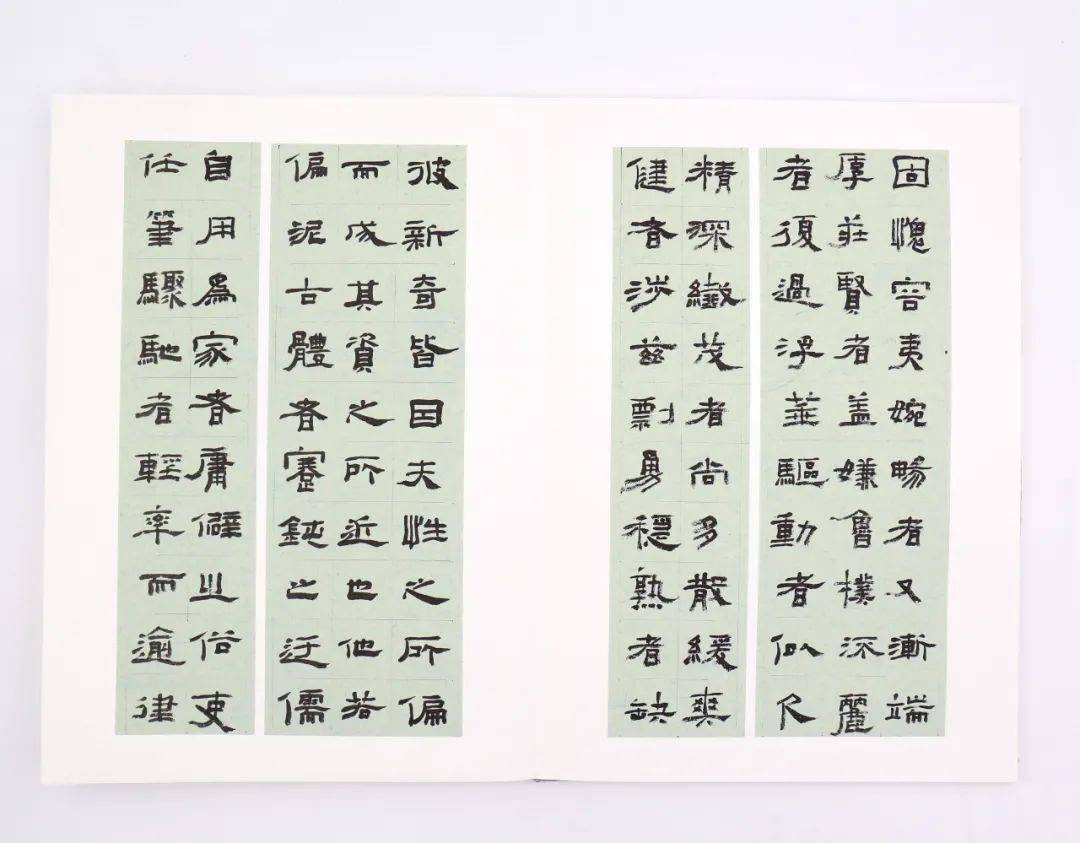 固愧容夷婉暢者又漸端
厚莊賢者盖嫌魯樸流麗
者復過浮華驅動者似欠
精深纖茂者尚多散緩爽
健者涉茲剽勇穩熟者缺
彼新奇皆因夫性之所偏
而成其資之所近也他若
偏泥古體者蹇鈍之迂儒
自用爲家者庸僻之俗吏
任筆驟馳者輕率而逾律